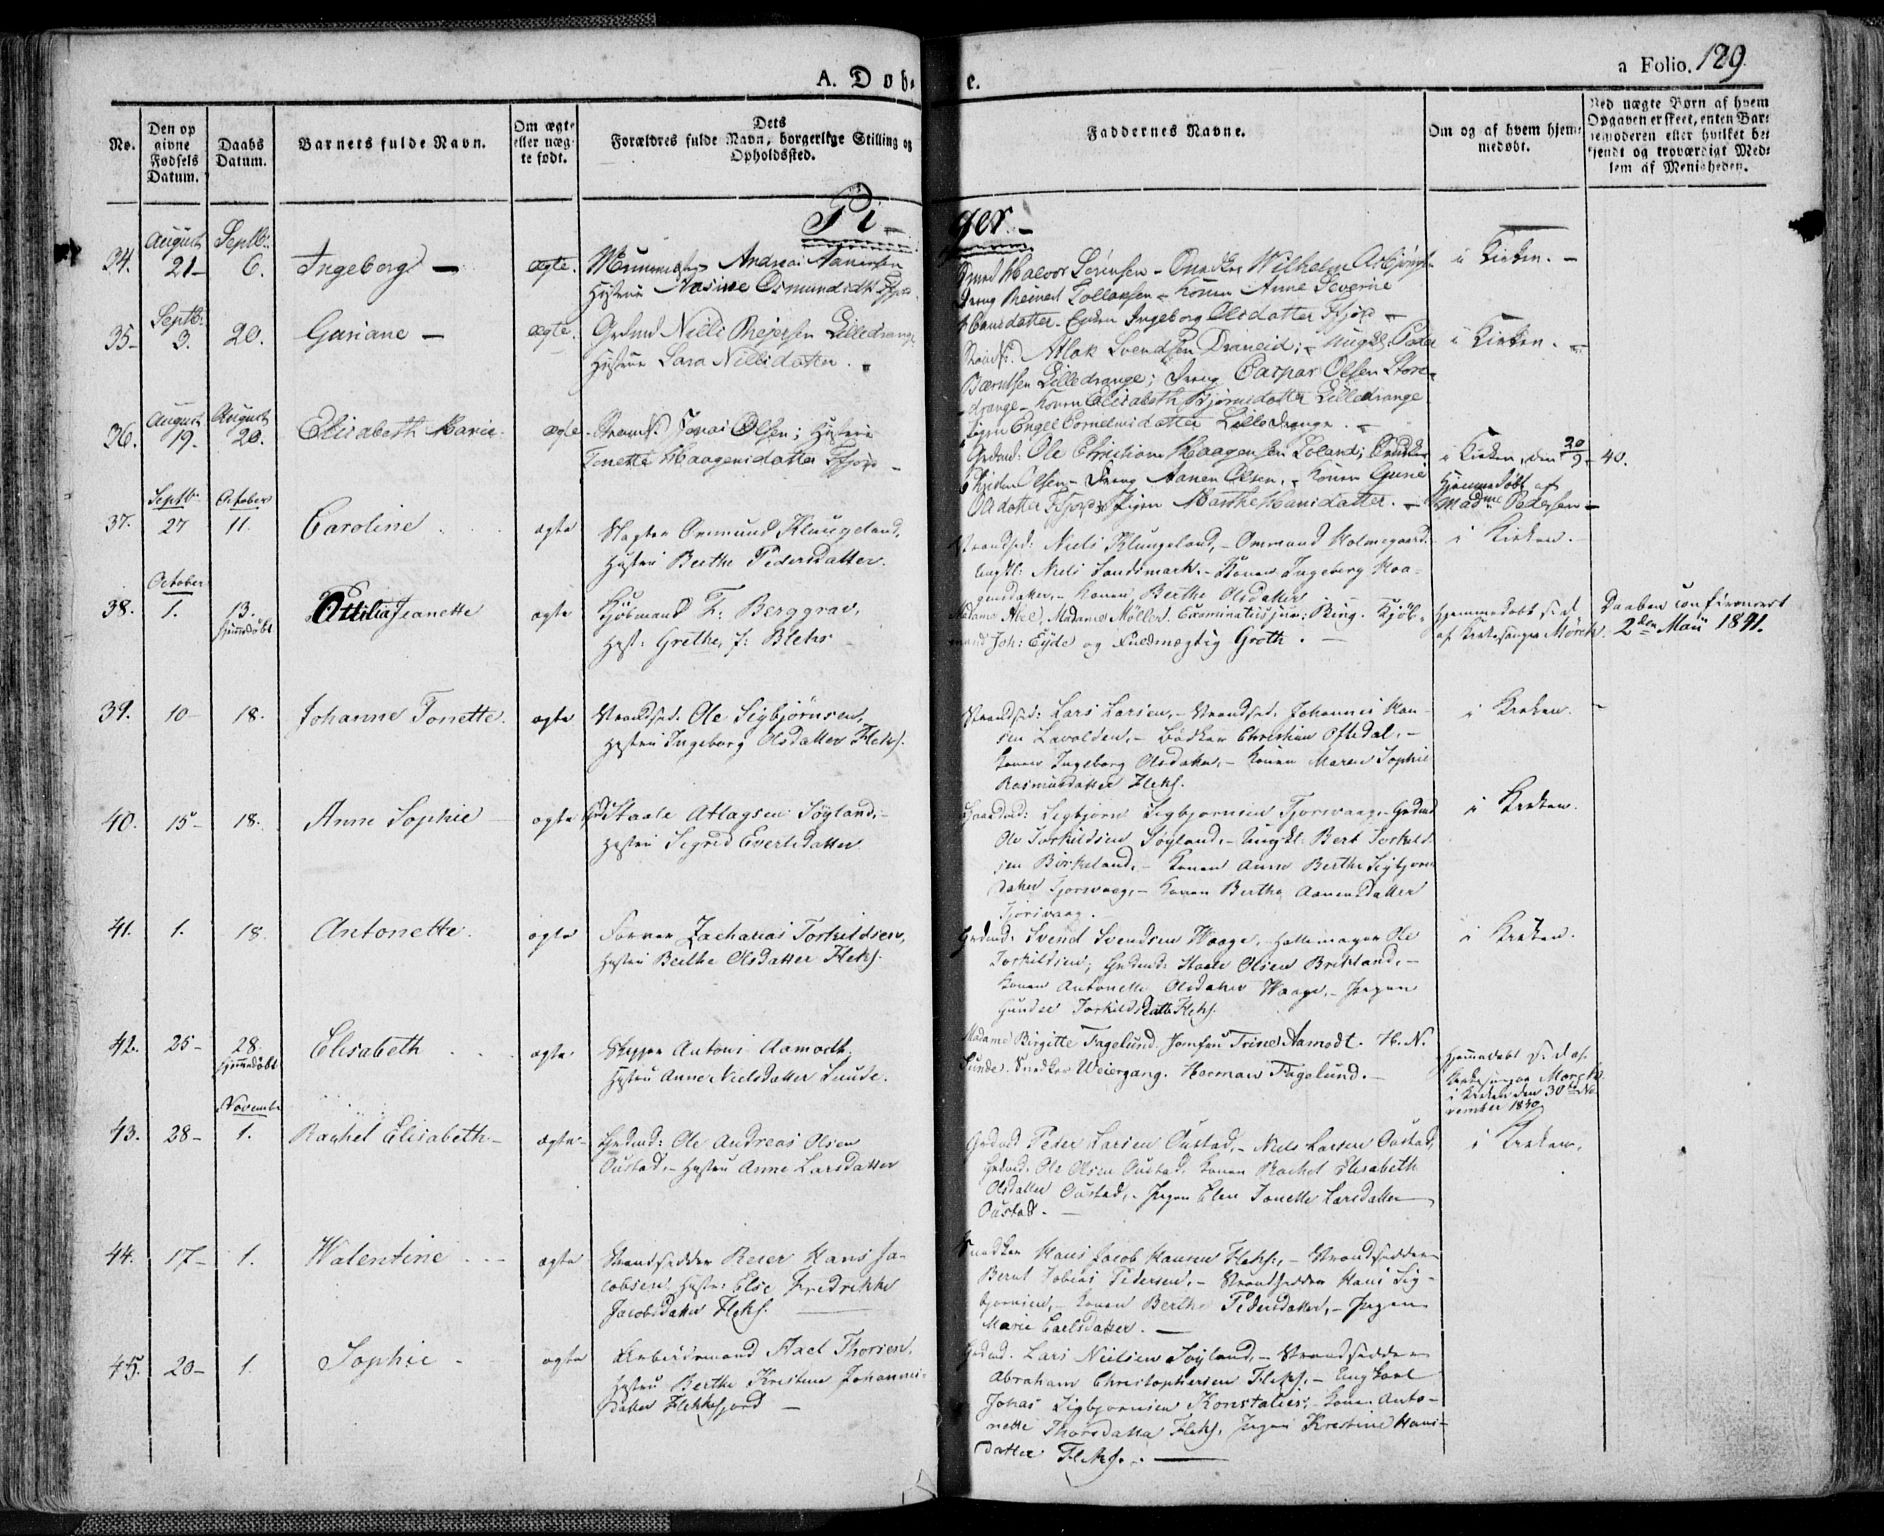 A. Dobe.
a Folio. 129.
No.
Den opgivne Fødsels Datum.
Daabs Datum.
Barnets fulde Navn.
Om ægte eller uægte født.
Dets
Forældres fulde Navn, borgerlige Stilling og Opholdssted.
Faddernes Navne.
Om og af hvem hjemmedøbt.
Ved uægte Børn af hvem
Opgaven er skeet, enten Bar-
nemoderen eller hvilket be-
kjendt og troværdigt Med-
lem af Menigheden.
Pi- ger. -
34. August 21- Septb: 6. Ingeborg - ægte. Andreas Aanensen
Hustrue Asine Osmundsdtr
Halvor Sørensen - Wilhelm
Dreng Reinert Tollaksen - Konen Anne Severine
Hansdatter - Ingeborg Olsdatter Ffjord -
i Kirken. -
35- Septb: 3. 20. Gariane - ægte. Grdmd Niels Reiersen Lilledrange
Hustrue Sara Nillsdatter.
Atlak Svendsen Draneid; Ungkl. Peder
Berntsen Lilledrange; Dreng Caspar Olsen Store-
drange - Konen Elisabeth Bjørnsdatter Lilledrange
Pigen Engel Cornelius datter Lilledrange. -
i Kirken. -
36. August 19- August 20. Elisabeth Marie. ægte. Strands. Jonas Olsen; Hustrue
Tonette Haagensdatter Ffjord -
Grdmd: Ole Christian Haagensen Loland;
Olsen - Dreng Aanen Olsen, - Konen Gunil
Olsdatter Ffjord; Pigen Marthe Hansdatter. -
i Kirken, den 20/9 - 40.
Hjemmedøbt af
Madme Pedersen -
37. Septb: 27 October 11. Caroline ægte Slagter Ommund Klungeland,
Hustru Berthe Pedersdatter.
Strandsid: Niels Klungeland, - Ommund Holmegaard.
Ungkl: Niels Sandsmark. - Konen Ingeborg Haa-
gensdatter, - Konen Berthe Olsdatter
i Kirken. -
38. October 1. 13. hjemmedøbt Ottilia Jeanette ægte Kjøbmand F: Berggrav,
Hust: Grethe, f: Blehs
Madame Abel, Madame Møller. Examinatus jur: Bing. Kjøb-
mand Joh: Eyde og Fuldmægtig Groth. -
Hjemmedøbt s: d
af Kirkesanger Mørch.
Daaben confirmert
2den Maii 1841.
39. 10- 18. Johanne Tonette. ægte Strandsid: Ole Sigbjørnsen,
Hustru Ingeborg Olsdatter Flekf.
Strandsid: Lars Larsen, - Strandsid: Johannes Han-
sen Lavolden, - Bødker Christian Oftedal, -
Konen Ingeborg Olsdatter, - Konen Maren Sophie
Rasmusdatter Flekf.
i Kirken. -
40. 15- 18. Anne Sophie ægte Staale Atlagsen Søyland, -
Hustru Sigrid Evertsdatter
Sigbjørn Sigbjørnsen Tjorsvaag, Grdmd
Ole Torkildsen Søyland, - Ungkl. Bert Torkild-
sen Birkeland, - Konen Anne Berthe Sigbjørns
datter Tjorsvaag, - Konen Berthe Aanensdatter
Tjorsvaag.
i Kirken.
41. 1. 18. Antonette. ægte Farver Zacharias Torkildsen,
Hustru Berthe Olsdatter Flekf.
Grdmd: Svend Svendsen Waage, Hattemager Ole
Torkildsen; Grdmd: Staale Olsen Birkland, -
Konen Antonette Olsdatter Waage, - Pigen
Gundel Torkildsdatter Flekf.
i Kirken.
42. 25- 28. hjemmedøbt Elisabeth ægte Skipper Antoni Aamodt,
Hustru Anne Nielsdatter Sunde.
Madame Birgitte Fagelund. Jomfru Trine Aamodt. H. N.
Sunde. Snedker Weiergang. Herman Fagelund. -
Hjemmedøbt s: d af
Kirkesanger Morch
i Kirken den 30te No
vember 1840
43. 28- November 1. Rachel Elisabeth - ægte- Grdmd: Ole Andreas Olsen
Oustad, - Hustru Anne Larsdatter
Grdmd Peder Larsen Oustad, - Niels Larsen Oustad,
Grdmd: Ole Olsen Oustad. Konen Rachel Elisabeth
Olsdatter Oustad, - Pigen Elen Tonette Larsdatter
Oustad. -
i Kirken.
44. 17- 1. Walentine ægte Strandsidder Reier Hans Ja-
cobsen, Hustr: Else Fredrikke
Jacobsdatter Flekf.
Snedker Hans Jacob Hansen Flekf:, - Strandsidder
Bernt Tobias Pedersen, - Strandsidder Hans Sig-
bjørnsen, - Konen Berthe Pedersdatter, - Pigen
Marie Carlsdatter. -
45. 20- 1. Sophie - ægte Arbeidsmand Axel Thorsen,
Hustru Berthe Kristine Johannes-
datter Flekkefjord -
Grdmd. Lars Nielsen Søyland, - Strandsidder
Abraham Christophersen Flekf. - Ungkarl
Johas Sigbjørnsen Konstalies; - Konen Anto-
nette Thorsdatter Flekf, Pigen Kristine Hans-
datter Flekf. -